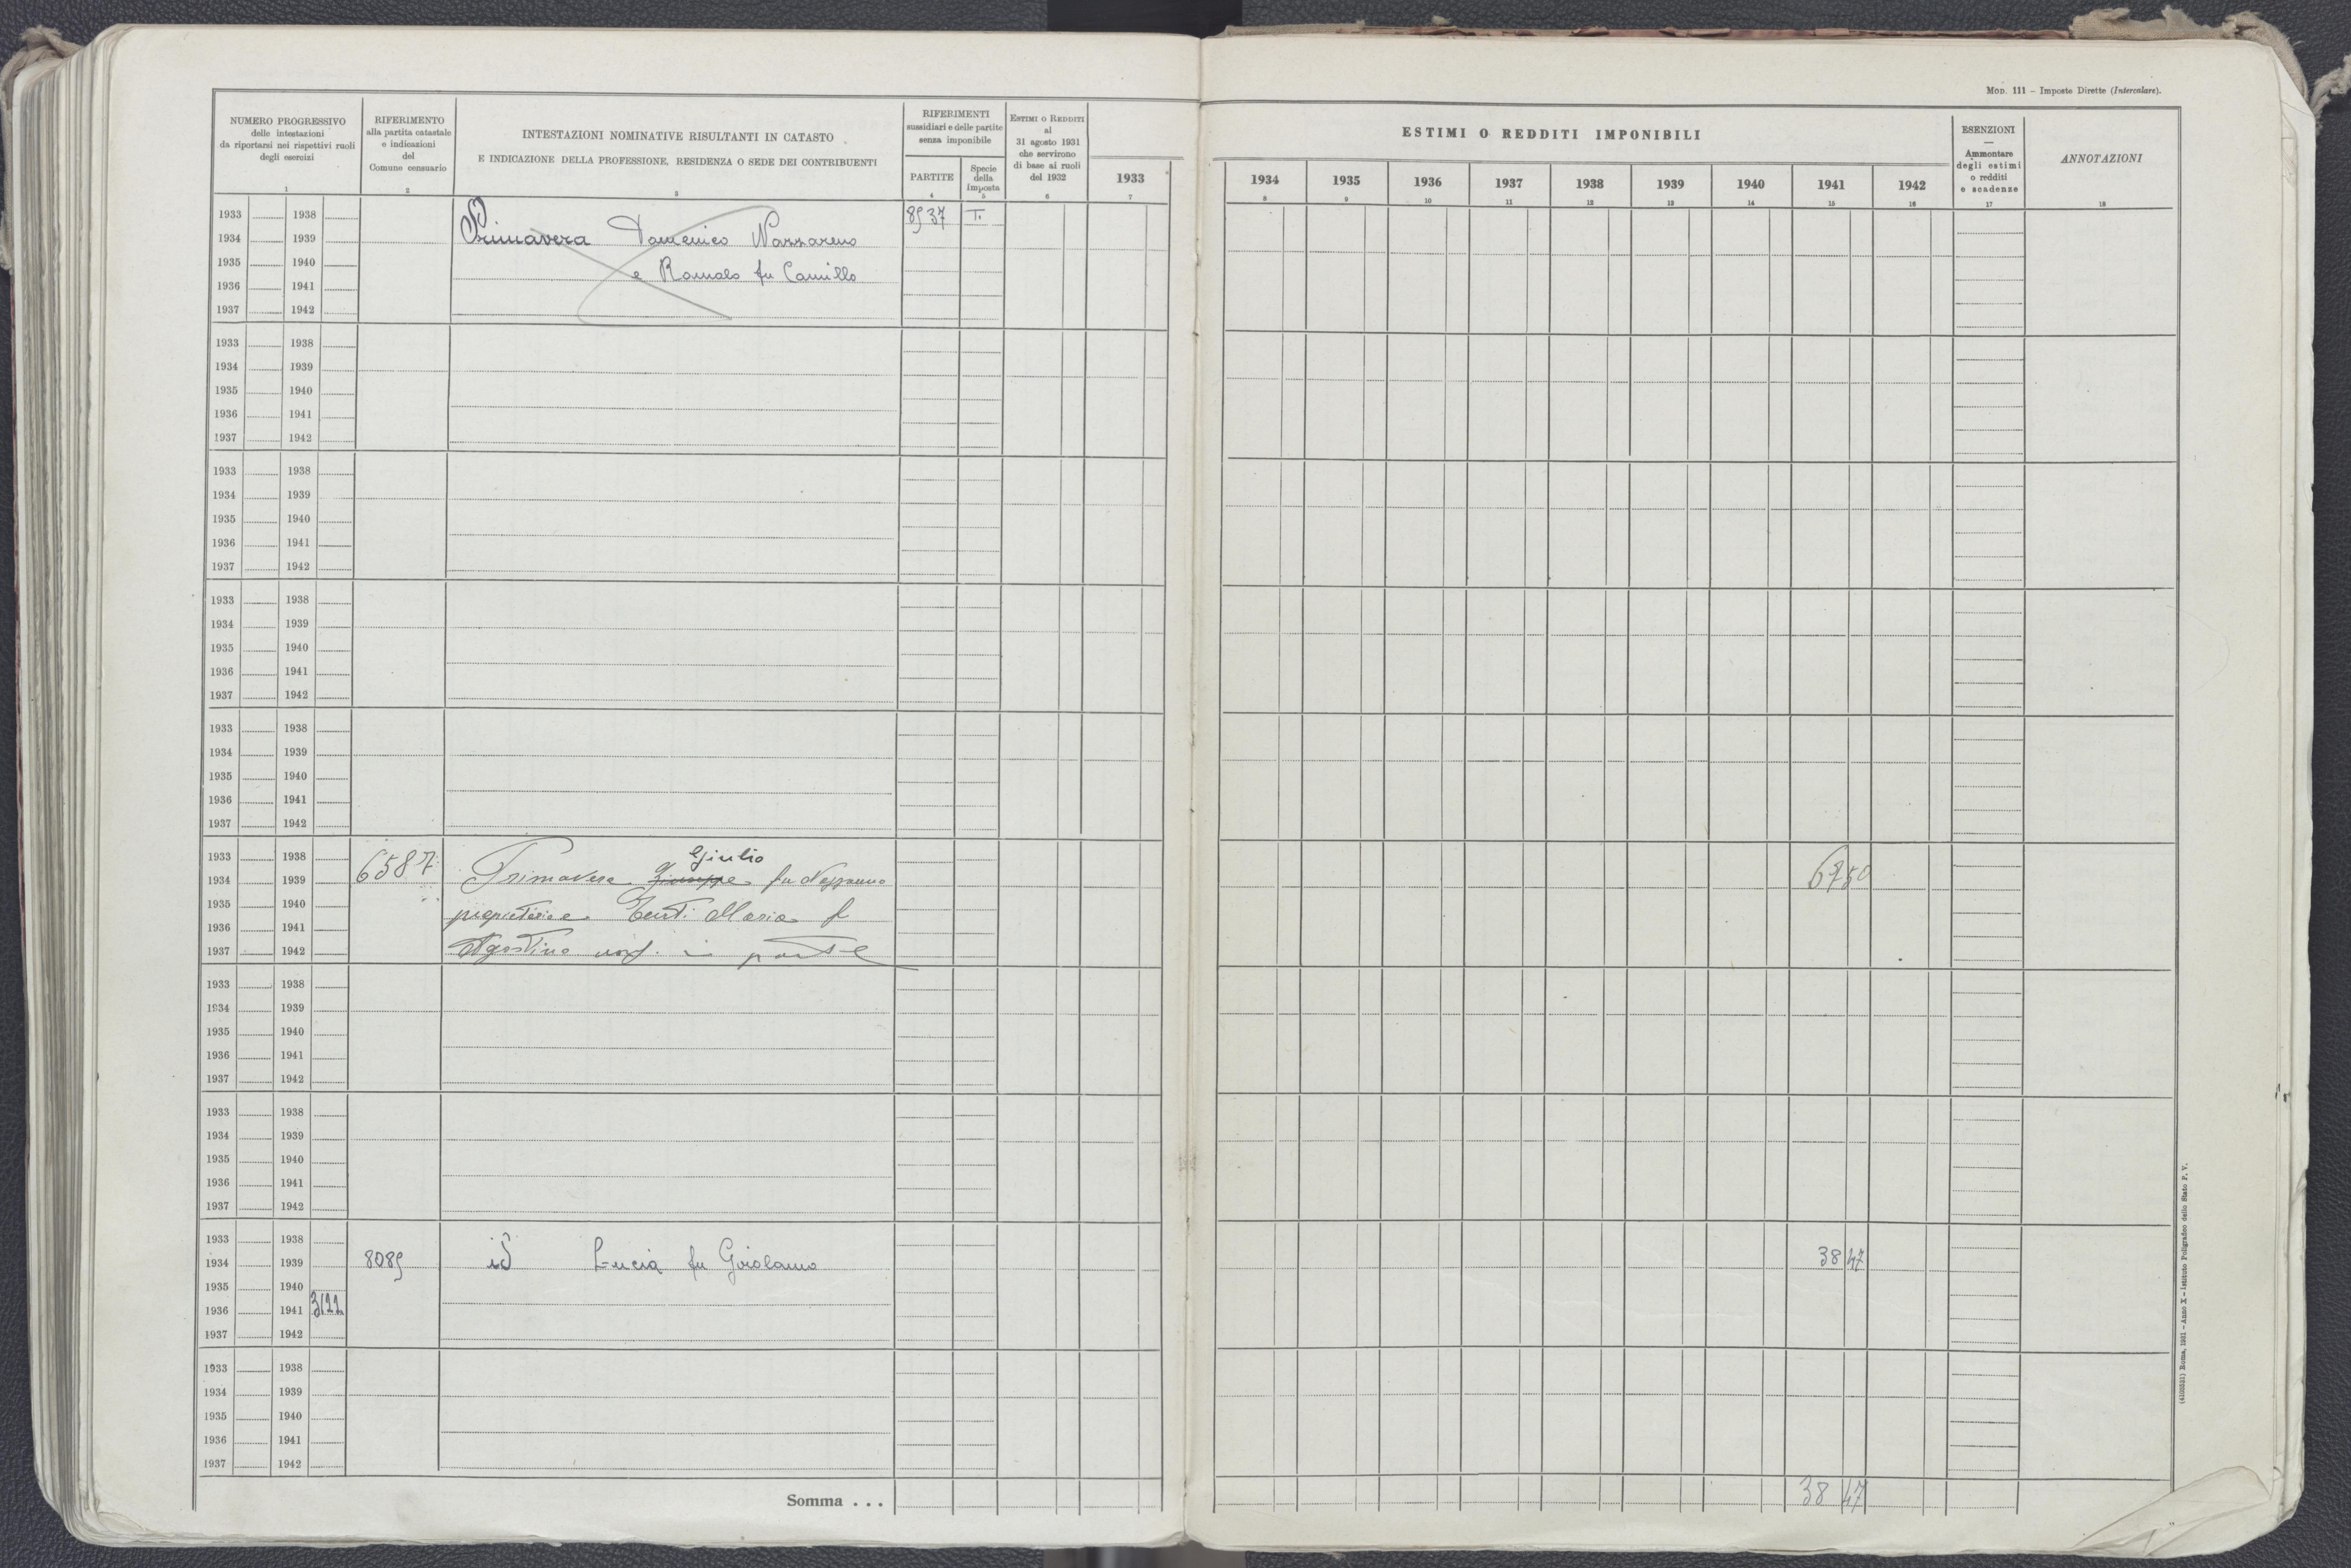 Mod. 111 – Imposte Dirette (Intercalare).
NUMERO PROGRESSIVO
delle intestazioni
da riportarsi nei rispettivi ruoli
degli esercizi
1
RIFERIMENTO
alla partita catastale
e indicazioni
del
Comune censuario
2
INTESTAZIONI NOMINATIVE RISULTANTI IN CATASTO
E INDICAZIONE DELLA PROFESSIONE, RESIDENZA O SEDE DEI CONTRIBUENTI
3
RIFERIMENTI
sussidiari e delle partite
senza imponibile
PARTITE
4
Specie
della
imposta
5
Estimi o Redditi
al
31 agosto 1931
che servirono
di base ai ruoli
del 1932
6
1933
7
ESTIMI O REDDITI IMPONIBILI
1934 1935 1936 1937 1938 1939 1940 1941 1942
8 9 10 11 12 13 14 15 16
ESENZIONI
—
Ammontare
degli estimi
o redditi
e scadenze
17
ANNOTAZIONI
18
1933 1938 8937 T.
1934 1939 Primavera Domenico Nazzareno
1935 1940 e Romolo fu Camillo
1936 1941
1937 1942
1933 1938
1934 1939
1935 1940
1936 1941
1937 1942
1933 1938
1934 1939
1935 1940
1936 1941
1937 1942
1933 1938
1934 1939
1935 1940
1936 1941
1937 1942
1933 1938
1934 1939
1935 1940
1936 1941
1937 1942
1933 1938 6587 Giulio
1934 1939 Primavera Giuseppe fu Nazzareno 6750
1935 1940 proprietario e Tenti Maria f
1936 1941
1937 1942 Agostino usuf. in parte
1933 1938
1934 1939
1935 1940
1936 1941
1937 1942
1933 1938
1934 1939
1935 1940
1936 1941
1937 1942
1933 1938
1934 1939 8089 id Lucia fu Girolamo 38 47
1935 1940
1936 1941 3122
1937 1942
1933 1938
1934 1939
1935 1940
1936 1941
1937 1942
Somma . . . 38 47
(4103881) Roma, 1931 – Anno X – Istituto Poligrafico dello Stato P. V.